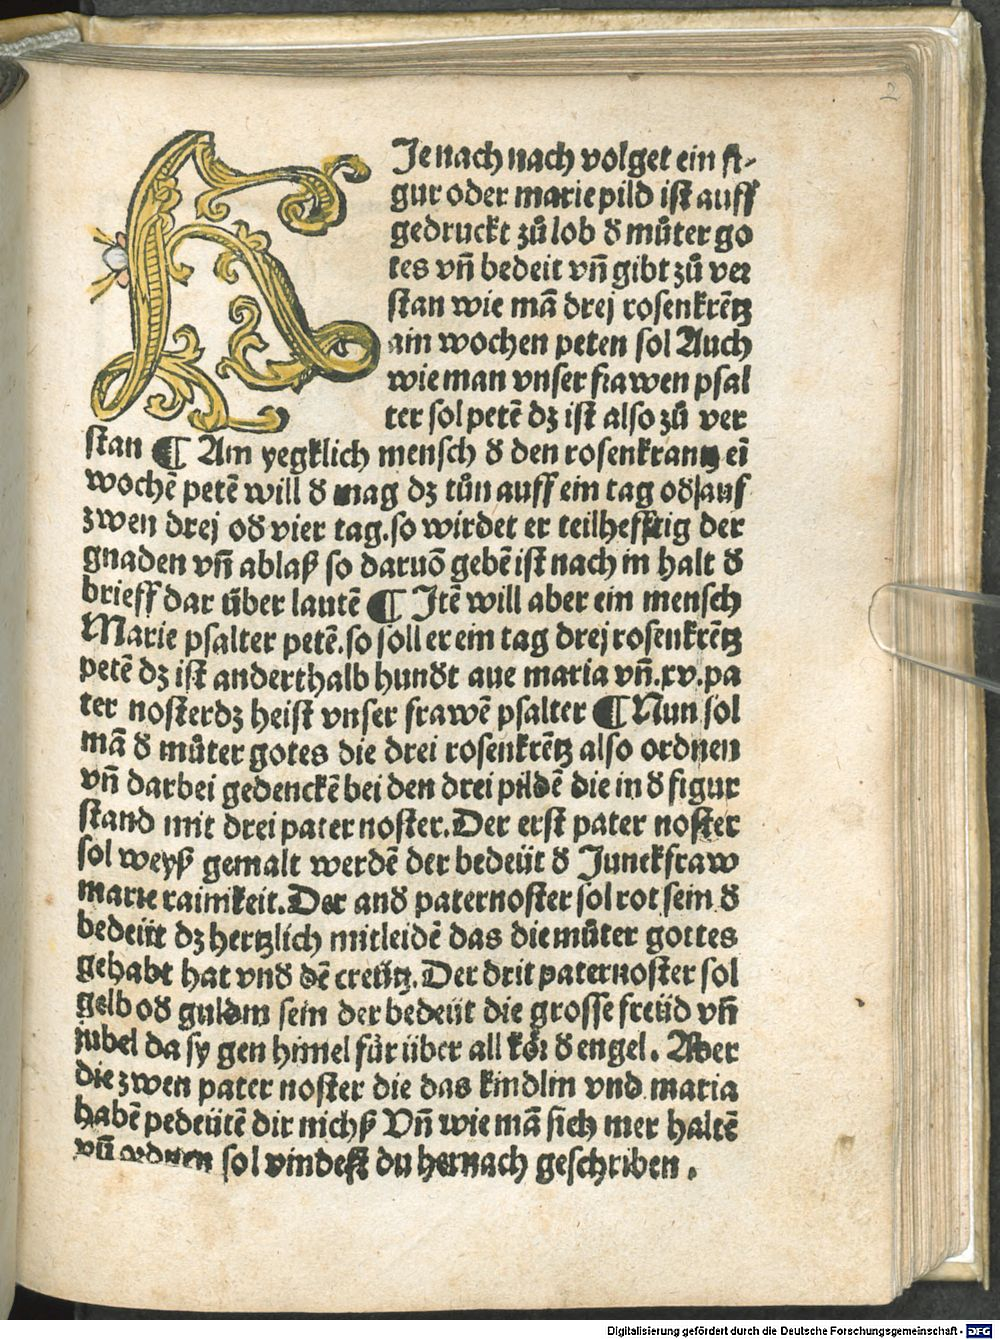 2
HJe nach nach volget ein fi-
gur oder marie pild ist auff
gedruckt zů lob d̕ můter go
tes vn̄ bedeit vn̄ gibt zů ver
stan wie mā drej rosenkrētz
ain wochen peten sol Auch
wie man vnser frawen psal
ter sol petē dz ist also zů ver
stan ¶ Am yegklich mensch d̕ den rosenkrantz eī
wochē petē will d̕ mag dz tůn auff ein tag od̕ auf
zwen drej od̕ vier tag. so wirdet er teilhefftig der
gnaden vn̄ ablaß so daruō gebē ist nach in halt d̕
brieff dar über lautē ¶ Jtē will aber ein mensch
Marie psalter petē. so soll er ein tag drej rosenkrētz
petē dz ist anderthalb hund̕t aue maria vn̄ .xv. pa
ter noster dz heist vnser frawē psalter ¶ Nun sol
mā d̕ můter gotes die drei rosenkrētz also ordnen
vn̄ darbei gedenckē bei den drei pildē die in d̕ figur
stand mit drei pater noster. Der erst pater noster
sol weyß gemalt werdē der bedeüt d̕ Junckfraw
marie rainikeit. Der and̕ paternoster sol rot sein d̕
bedeüt dz hertzlich mitleidē das die můter gottes
gehabt hat vnd̕ dē creütz. Der drit paternoster sol
gelb od̕ guldin sein der bedeüt die grosse freüd vn̄
jubel da sy gen himel für über all kör d̕ engel. Aber
die zwen pater noster die das kindlin vnd maria
habē pedeütē dir nichß Vn̄ wie mā sich mer haltē
vn̄ ordnen sol vindest du hernach geschriben.
Digitalisierung gefördert durch die Deutsche Forschungsgemeinschaft - DFG